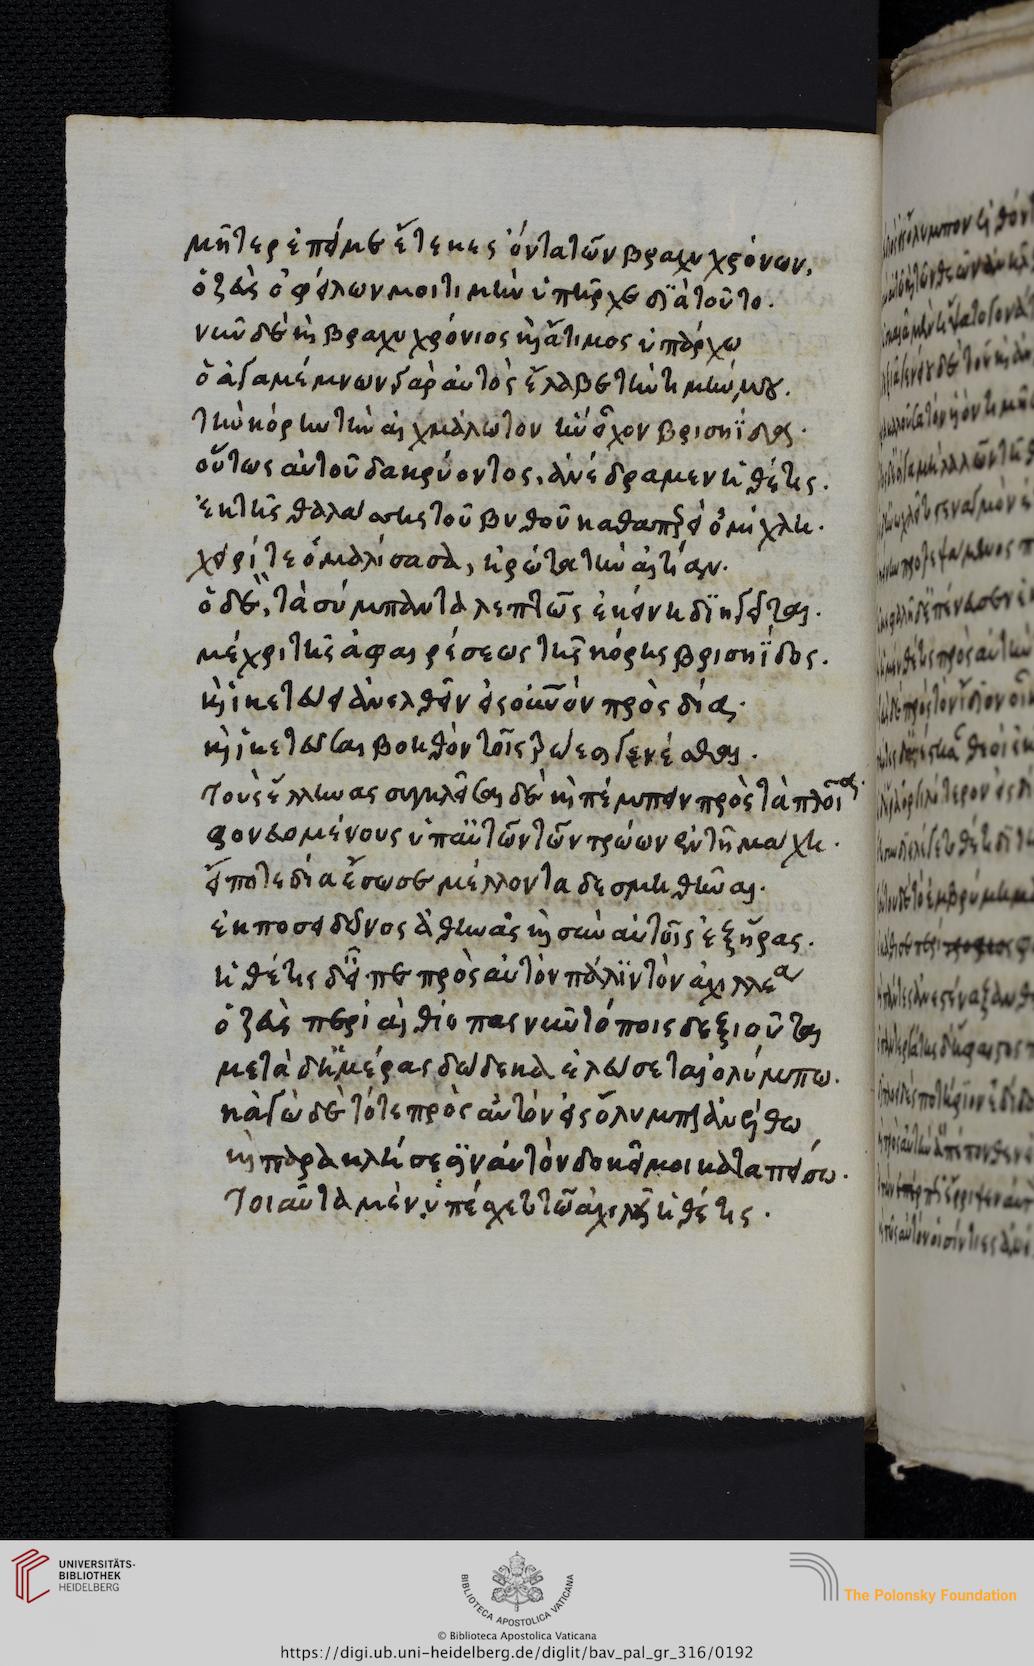 μῆτερ ἐπεί με ἔτεκες ὄντα τῶν βραχυχρόνων,
ὁ ζεὺς ὀφείλων μοι τιμὴν ὑπῆρχε διὰ τοῦτο.
νῦν δὲ καὶ βραχυχρόνιος καὶ ἄτιμος ὑπάρχω
ὁ ἀγαμέμνων γὰρ αὐτὸς ἔλαβε τὴν τιμήν μου.
τὴν κόρην τὴν αἰχμάλωτον ἣν εἶχον βρισηΐδα.
οὕτως αὐτοῦ δακρύοντος, ἀνέδραμεν ἡ θέτις.
ἐκ τῆς θαλάσσης τοῦ βυθοῦ καθαπερεὶ ὀμίχλη.
χειρί τε ὁμαλίσασα, ἠρώτα τὴν αἰτίαν.
ὁ δὲ, τὰ σύμπαντα λεπτῶς ἐκείνῃ διηγεῖται.
μέχρι τῆς ἀφαιρέσεως τῆς κόρης βρισηΐδος.
καὶ ἱκετεύει ἀνελθεῖν εἰς οὐρανὸν πρὸς δία.
καὶ ἱκετεῦσαι βοηθὸν τοῖς τρώεσι γενέσθαι.
τοὺς ἕλληνας συγκλεῖσαι δὲ καὶ πέμπειν πρὸς τὰ πλοῖα.
φονευομένους ὑπ' αὐτῶν τῶν τρώων ἐν τῇ μάχῃ.
εἴποτε δία ἔσωσε μέλλοντα δεσμηθῆναι.
ἐκ ποσειδῶνος ἀθηνᾶς καὶ σὺν αὐτοῖς ἐξ ἥρας.
ἡ θέτις δ' εἶπε πρὸς αὐτὸν πάλιν τὸν ἀχιλλέα
ὁ ζεὺς περὶ αἰθίοπας νῦν τόποις δεξιοῦται
μετὰ δ' ἡμέρας δώδεκα ἐλεύσεται ὀλύμπω.
κἀγὼ δὲ τότε πρὸς αὐτὸν εἰς ὄλυμπον ἀνέλθω
καὶ παρακλήσεσιν αὐτὸν δοκεῖ μοι καταπείσω.
τοιαῦτα μὲν ὑπέσχετο τῶ ἀχιλλεῖ ἡ θέτις.
UNIVERSITÄTS-
BIBLIOTHEK
HEIDELBERG
BIBLIOTECA APOSTOLICA VATICANA
The Polonsky Foundation
© Biblioteca Apostolica Vaticana
https://digi.ub.uni-heidelberg.de/diglit/bav_pal_gr_316/0192